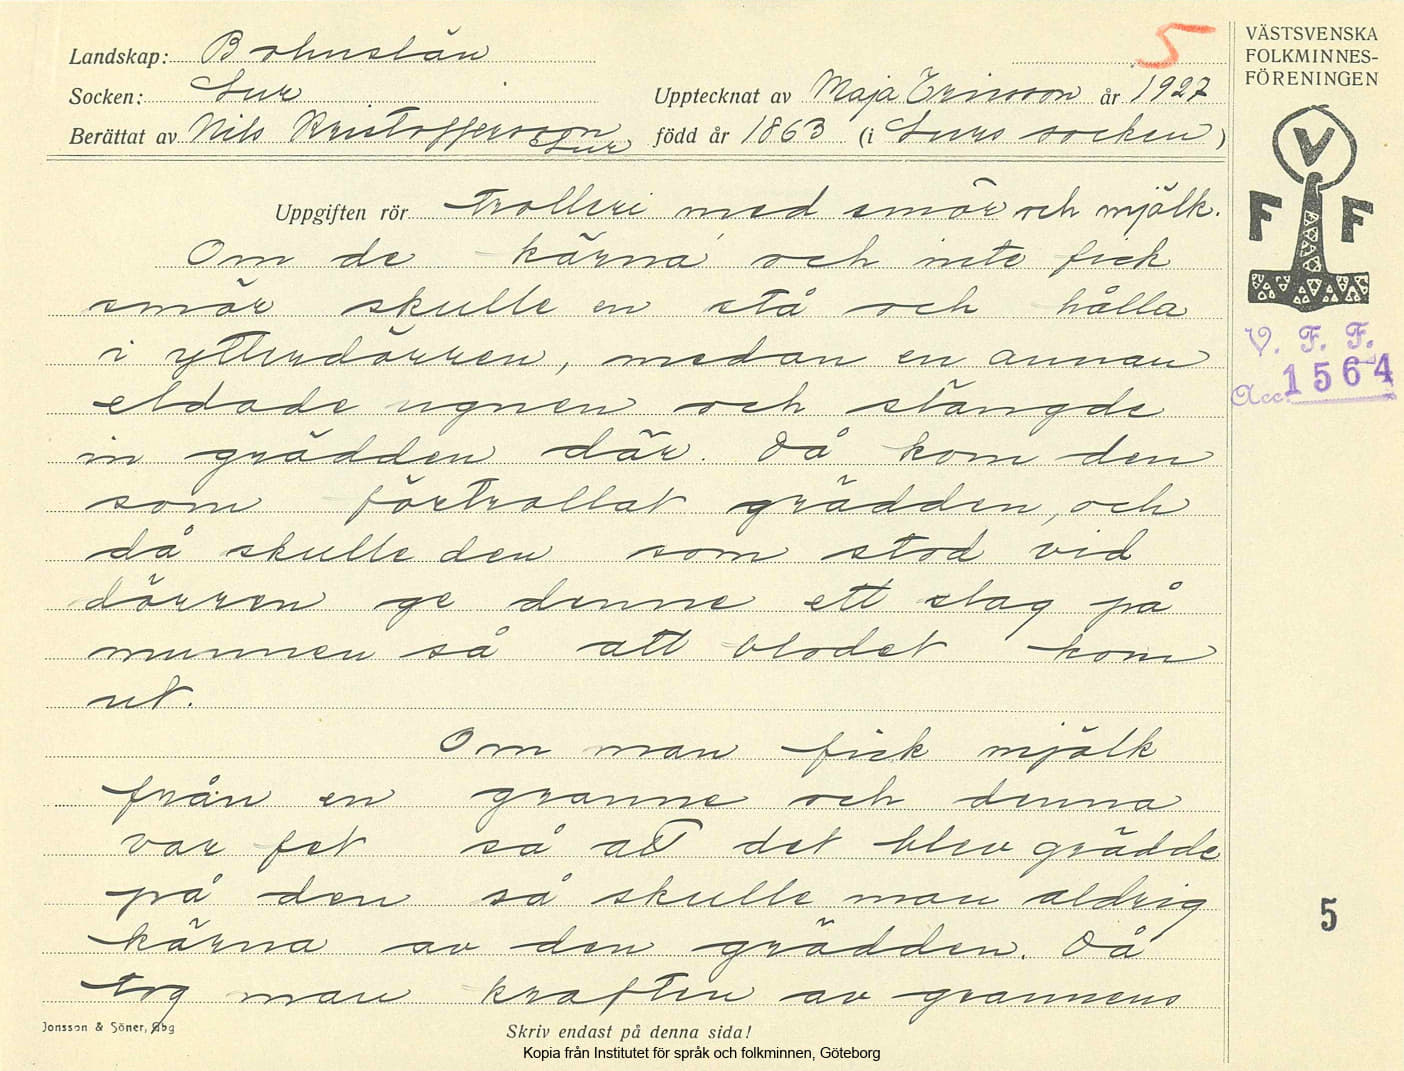 5
VÄSTSVENSKA
FOLKMINNES-
FÖRENINGEN
Landskap: Bohuslän
Socken: Lur
Upptecknat av Maja Ericsson år 1927
Berättat av Nils Kristoffersson
Lur
född år 1863 (i Lurs socken)
V
F F
V. F. F.
Acc. 1564
Uppgiften rör trolleri med smör och mjölk.
Om de kärna och inte fick
smör skulle en stå och hålla
i ytterdörren, medan en annan
eldade ugnen och stängde
in grädden där. Då kom den
som förtrollat grädden, och
då skulle den som stod vid
dörren ge denne ett slag på
munnen så att blodet kom
ut.
Om man fick mjölk
från en granne och denna
var fet så att det blev grädde
på den så skulle man aldrig
kärna av den grädden. Då
tog man kraften av grannens
5
Jonsson & Söner, Gbg
Skriv endast på denna sida!
Kopia från Institutet för språk och folkminnen, Göteborg